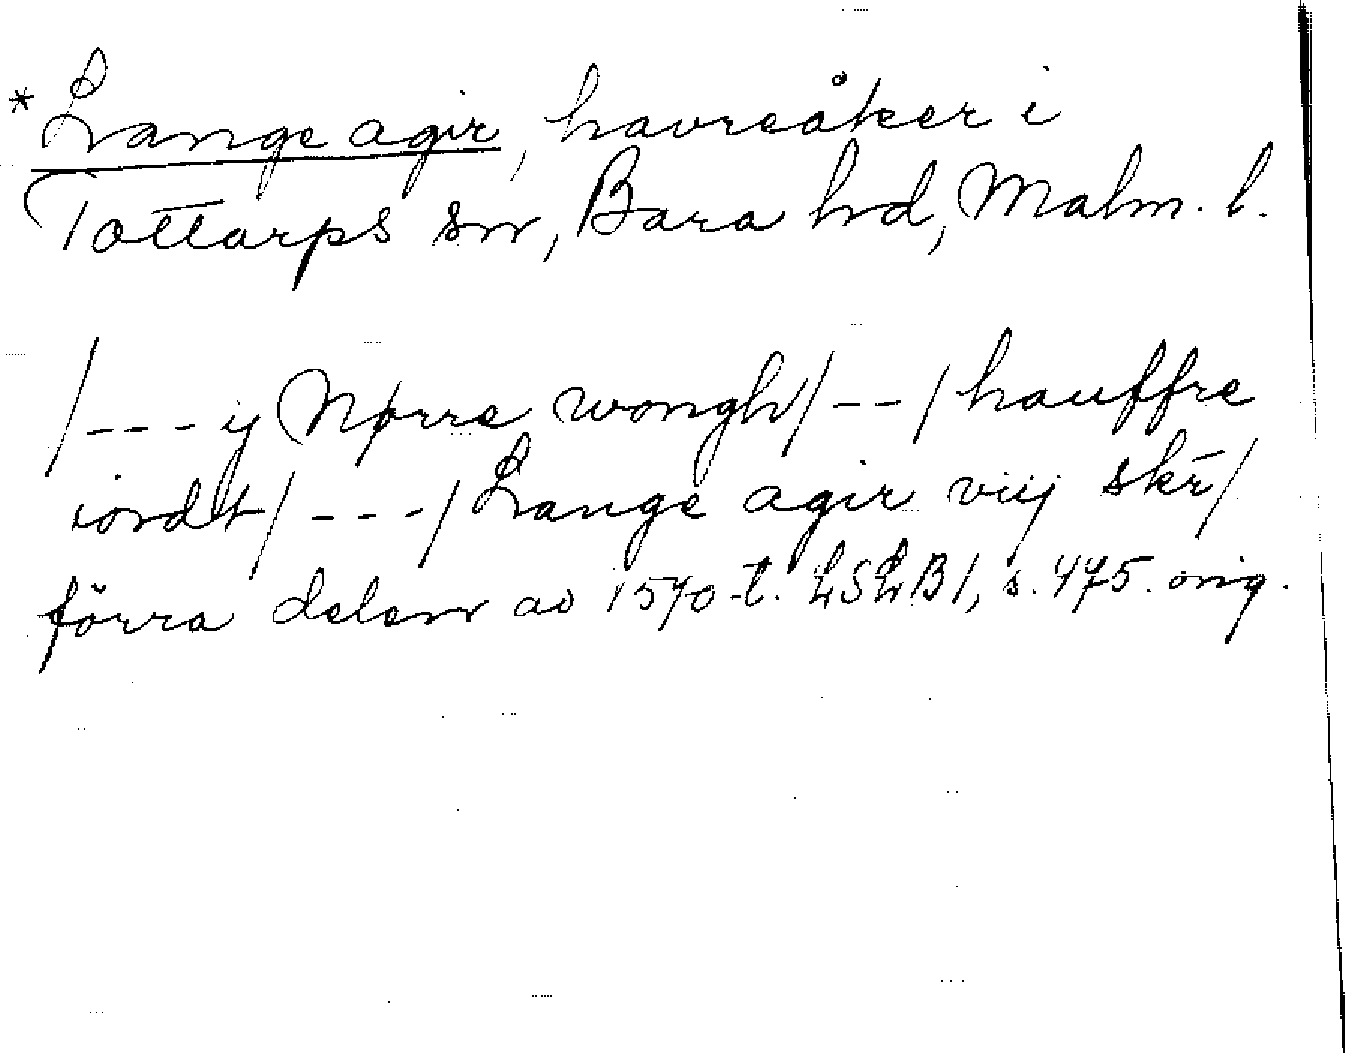 *Lange agir, havreåker i
Tottarps sn, Bara hd, Malm. l.
/---ij Nørre wongh/--/hauffre
iordt/---/Lange agir viij skr̄/
förra delen av 1570-t. LSLB1, s. 475. orig.